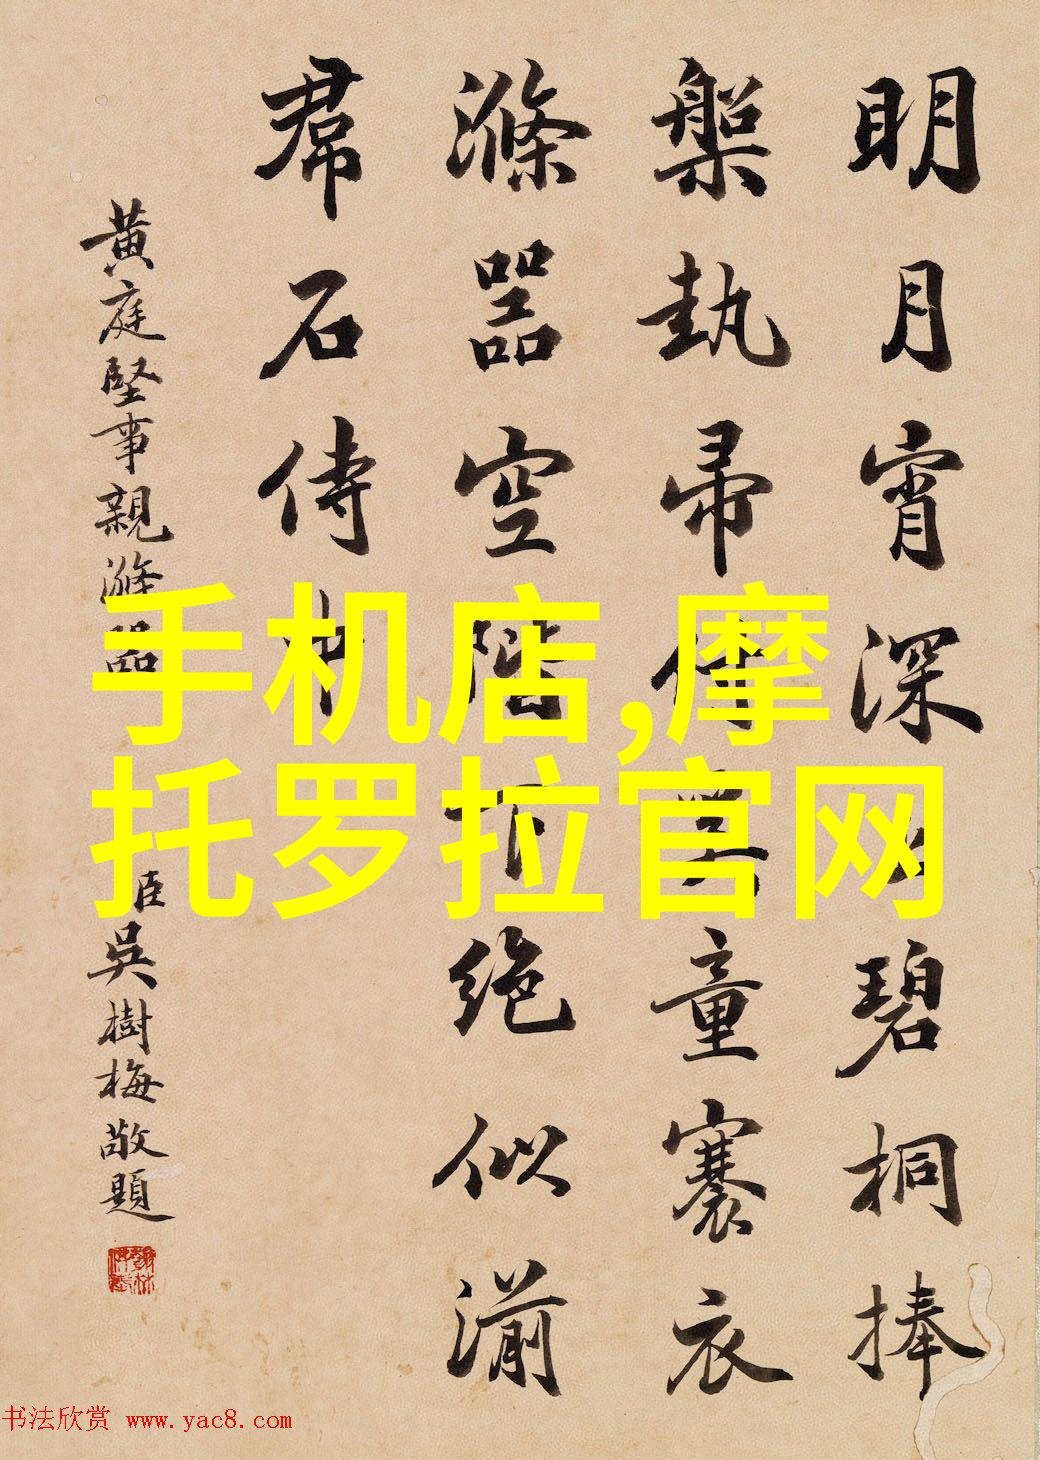 明月宵深碧桐捧
槃執帚侍童褰衣
滌器空階下絕似湔
帬石侍中
黃庭堅事親滌器
臣吳樹梅敬題
手机店,摩
托罗拉官网
书法欣赏 www.yac8.com